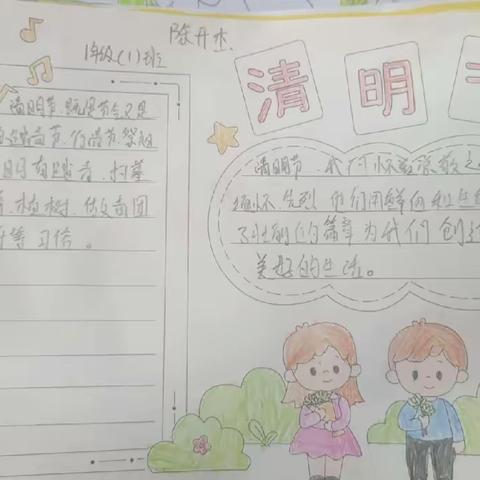 陈开杰
1年级(1)班
清明
清明节既是节气又是
踏青节、行清节、祭祖
有踏青、扫墓
植树、做青团
等习俗。
清明节,我们怀着崇敬之
缅怀先烈他们用鲜血和生
了壮丽的篇章为我们创
美好的生活。